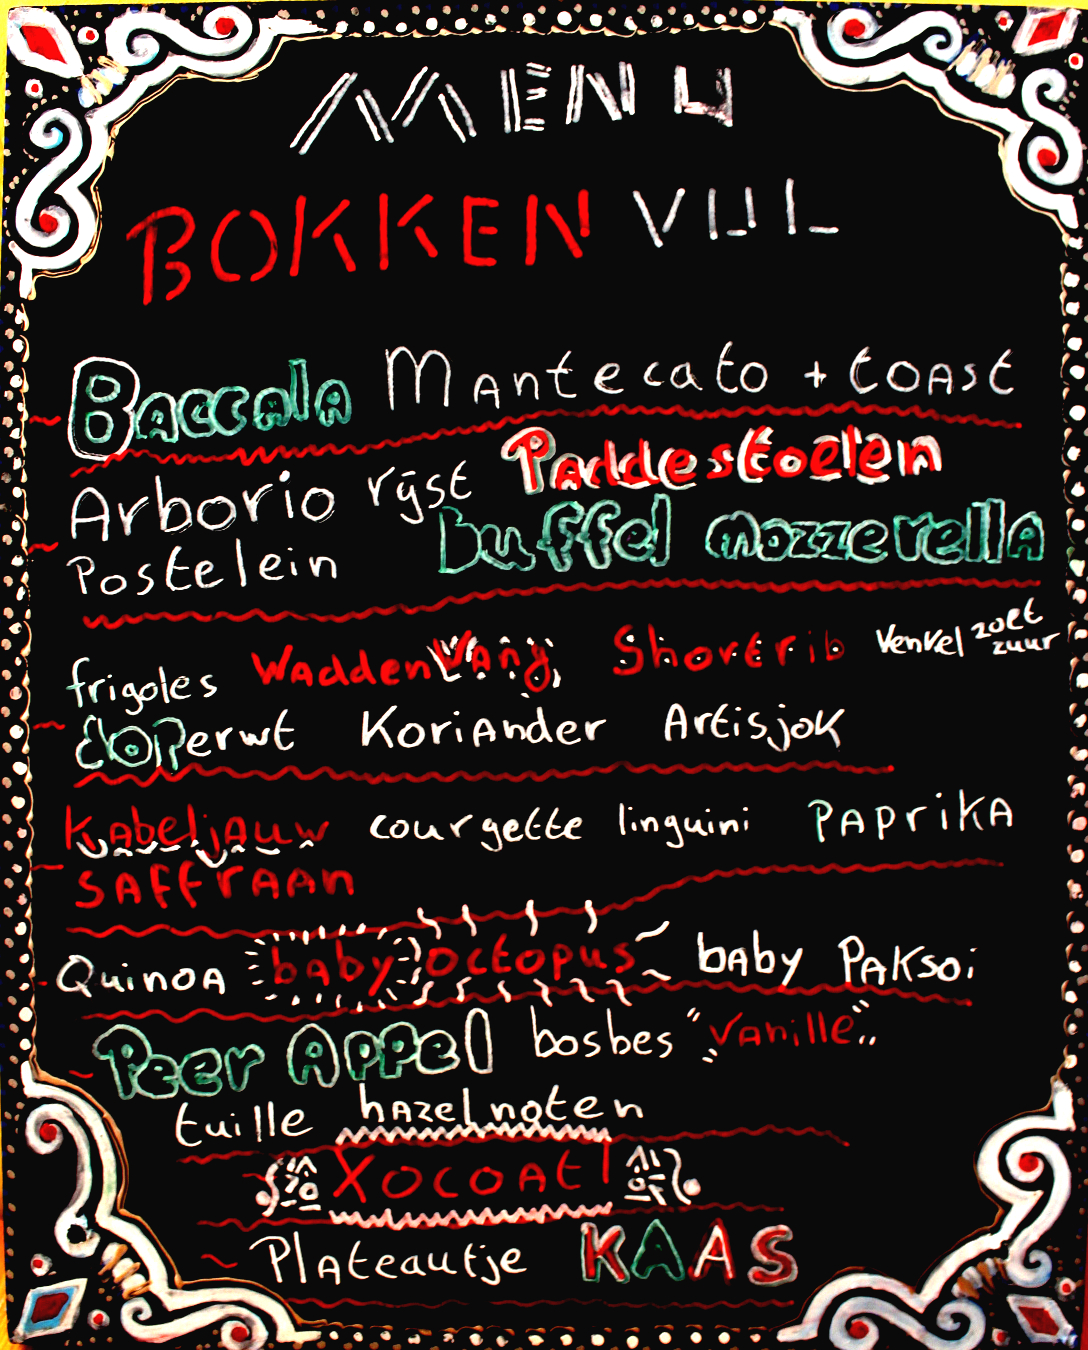 MENU
BOKKEN VIJL
~ Baccala Mantecato + toast
Arborio rijst Paddestoelen
~ Postelein buffel mozzerella
frigoles WaddenVang Shortrib Venkel zoet zuur
~ doperwt Koriander Artisjok
Kabeljauw courgette linguini Paprika
~ Saffraan
~ Quinoa baby octopus baby Paksoi
~ Peer Appel bosbes "Vanille"
tuille hazelnoten
~ Xocoatl
~ Plateautje KAAS